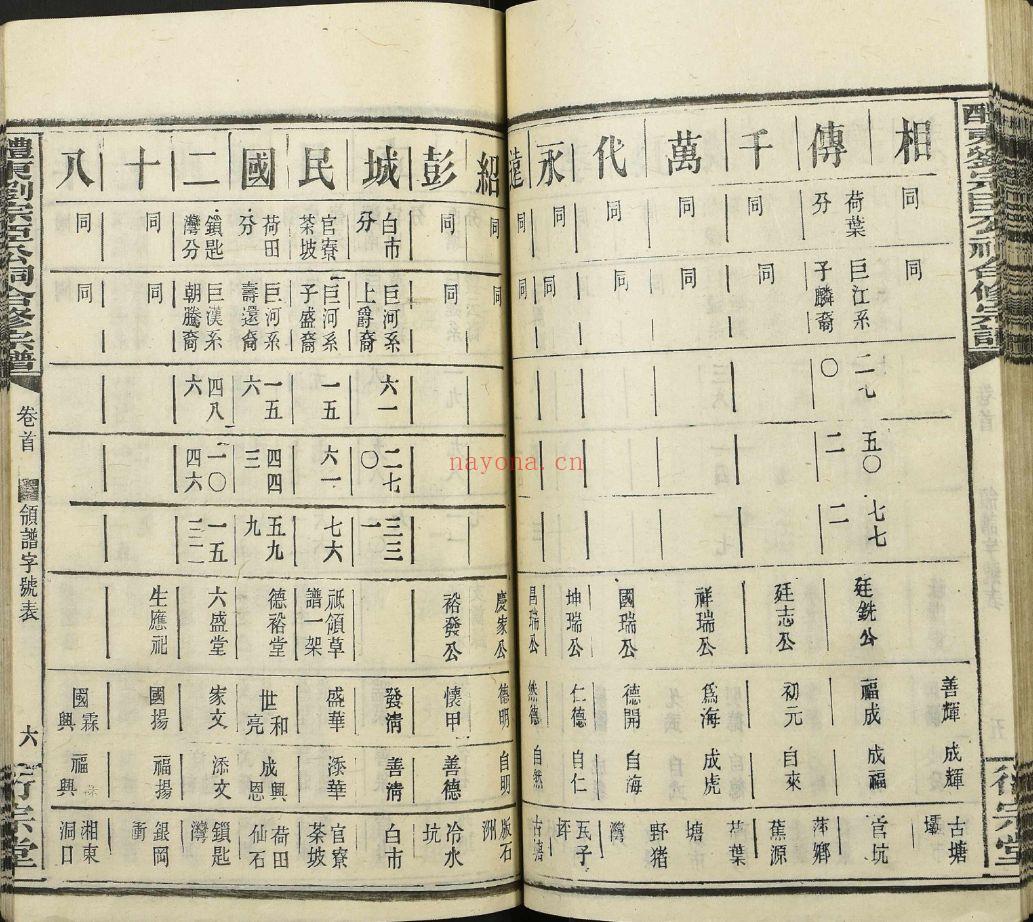 相 傳 千 萬 代 永 遠
同 荷葉分 同 同 同 同 同
同 巨江系子麟裔 同 同 同 同 同
二九 〇
五〇 二
七七 二
廷銑公 廷志公 祥瑞公 國瑞公 坤瑞公 昌瑞公
善輝 福成 初元 爲海 德開 仁德 然德
成輝 成福 自來 成虎 自海 自仁 自然
古塘壩 官坑 萍鄉蕉源 荷葉塘 野猪灣 瓦子坪 古塘
紹 彭 城 民 國 二 十 八
同 同 白市分 官寮茶坡 荷田分 鎖匙灣分 同 同
同 同 巨河系上爵裔 巨河系子盛裔 巨河系壽還裔 巨漢系朝騰裔 同 同
六一 一五 一五六 四八六
二七〇 六一 四四三 一一〇四六
三三一 七六 五九九 一五三二
慶家公 裕發公 祇領草譜一架 德裕堂 六盛堂 生應祀
德明 懷甲 發清 盛華 世和亮 家文 國揚 國霖興
自明 善德 善清 添華 成興恩 添文 福揚 福興
版石洲 冷水坑 白市 官寮茶坡 荷田仙石 鎖匙灣 銀岡衝 湘東洞口
醴東劉宗臣公祠合修宗譜
卷首
領譜字號表
六
nayona.cn